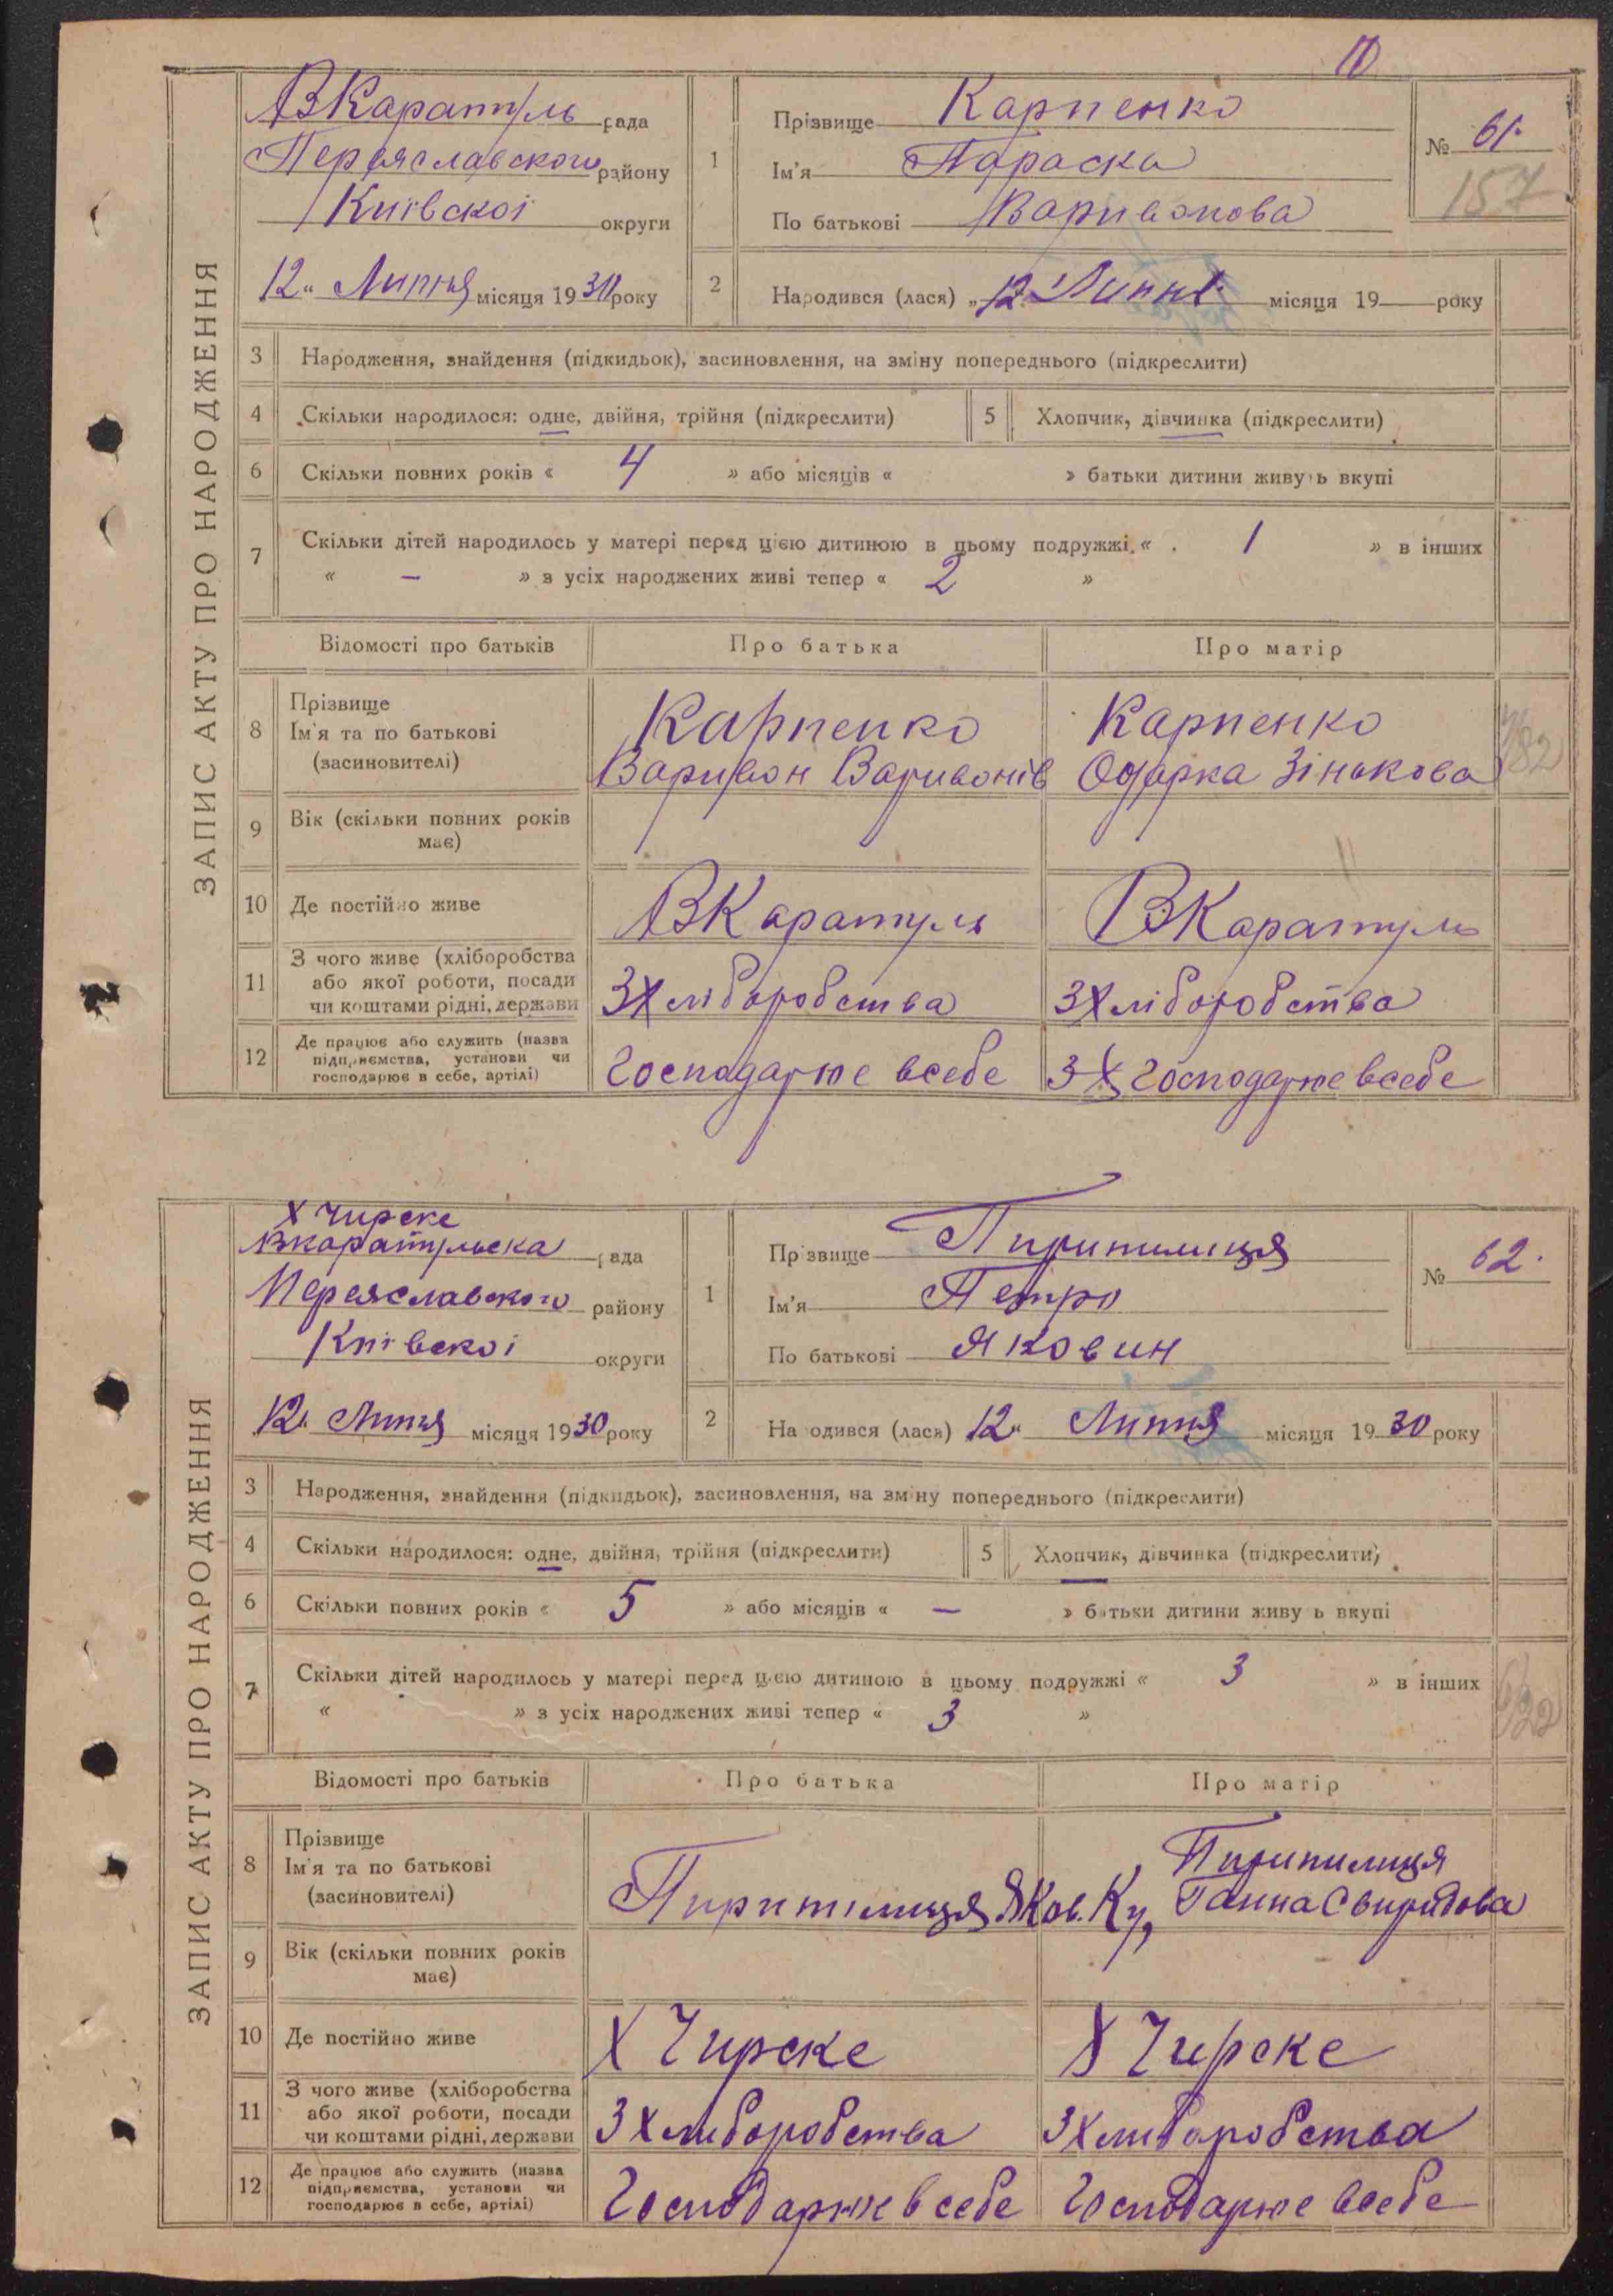 10
ЗАПИС АКТУ ПРО НАРОДЖЕННЯ
ВКаратуль рада
Переяславского району
Київскоі округи
12 " Липня місяця 1930 року
1
Прізвище Карпенко
Ім'я Параска
По батькові Варивонова
№ 61.
157
2
Народився (лася) " 12 Липня місяця 19 року
3 Народження, знайдення (підкидьок), засиновлення, на зміну попереднього (підкреслити)
4 Скільки народилося: одне, двійня, трійня (підкреслити) 5 Хлопчик, дівчинка (підкреслити)
6 Скільки повних років « 4 » або місяців « » батьки дитини живуть вкупі
7 Скільки дітей народилось у матері перед цією дитиною в цьому подружжі « 1 » в інших
« — » з усіх народжених живі тепер « 2 »
Відомості про батьків Про батька Про матір
8 Прізвище Ім'я та по батькові (засновителі)
Карпенко Карпенко
Варивон Варивонів Одарка Зінькова
82
9 Вік (скільки повних років має)
10 Де постійно живе ВКаратуль ВКаратуль
11 З чого живе (хліборобства або якої роботи, посади чи коштами рідні, держави
З Хліборобства З Хліборобства
12 Де працює або служить (назва підприємства, установи чи господарює в себе, артілі)
Господарює всебе Господарює всебе
ЗАПИС АКТУ ПРО НАРОДЖЕННЯ
Х Чирске
Вкаратульска рада
Переяславского району
Київскоі округи
12 " Липня місяця 1930 року
1
Прізвище Пирипилиця
Ім'я Петро
По батькові Яковин
№ 62.
2
Народився (лася) 12 " Липня місяця 1930 року
3 Народження, знайдення (підкидьок), засиновлення, на зміну попереднього (підкреслити)
4 Скільки народилося: одне, двійня, трійня (підкреслити) 5 Хлопчик, дівчинка (підкреслити)
6 Скільки повних років « 5 » або місяців « — » батьки дитини живуть вкупі
7 Скільки дітей народилось у матері перед цією дитиною в цьому подружжі « 3 » в інших
« » з усіх народжених живі тепер « 3 »
Відомості про батьків Про батька Про матір
8 Прізвище Ім'я та по батькові (засиновителі)
Пирипилиця Яков. Ку, Пирипилиця
Ганна Свиридова
9 Вік (скільки повних років має)
10 Де постійно живе Х Чирске Х Чирске
11 З чого живе (хліборобства або якої роботи, посади чи коштами рідні, держави
З Хлиборобства З Хлиборобства
12 Де працює або служить (назва підприємства, установи чи господарює в себе, артілі)
Господарює в себе Господарює всебе